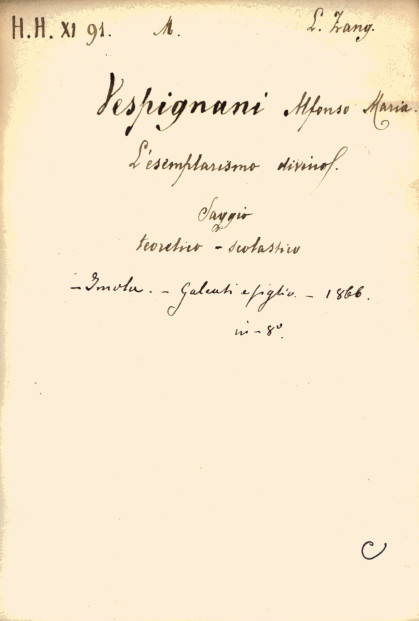 H.H. XI 91. M. L. Zang.
Vespignani Alfonso Maria.
L'esemplarismo divino.
Saggio
teoretico - scolastico
- Imola. - Galeati e figlio. - 1866.
in - 8º.
C